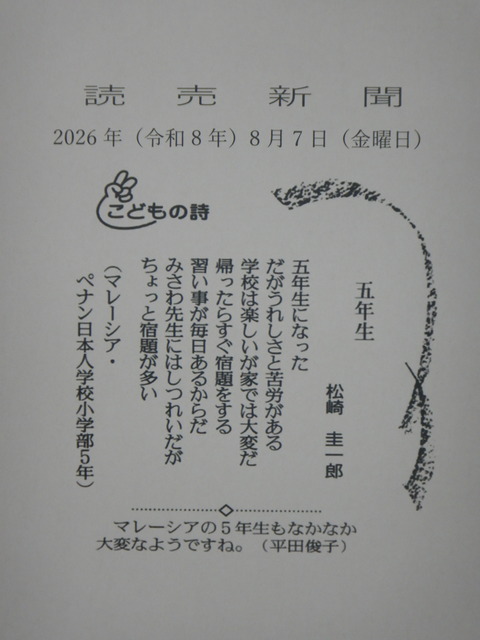 読売新聞
2026年（令和8年）8月7日（金曜日）
こどもの詩
五年生
松崎 圭一郎
五年生になった
だがうれしさと苦労がある
学校は楽しいが家では大変だ
帰ったらすぐ宿題をする
習い事が毎日あるからだ
みさわ先生にはしつれいだが
ちょっと宿題が多い
（マレーシア・
ペナン日本人学校小学部5年）
マレーシアの5年生もなかなか
大変なようですね。（平田俊子）